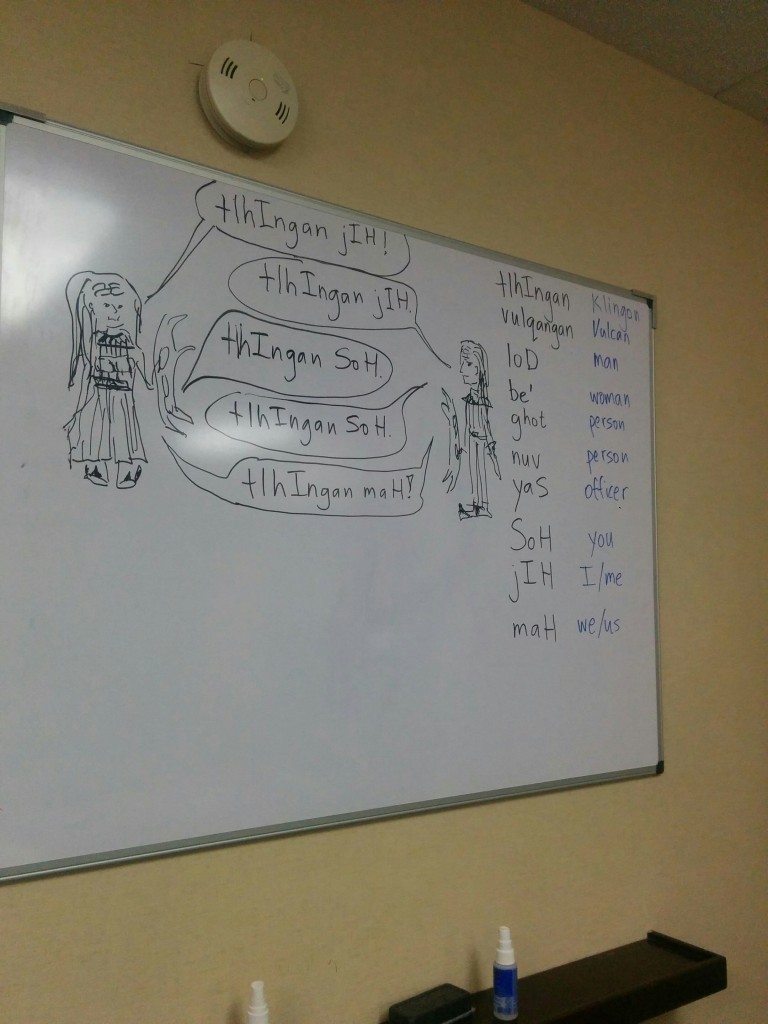 tlhIngan jIH!
tlhIngan jIH.
tlhIngan SoH.
tlhIngan SoH.
tlhIngan maH!
tlhIngan Klingon
vulqangan Vulcan
loD man
be' woman
ghot person
nuv person
yaS officer
SoH you
jIH I/me
maH we/us